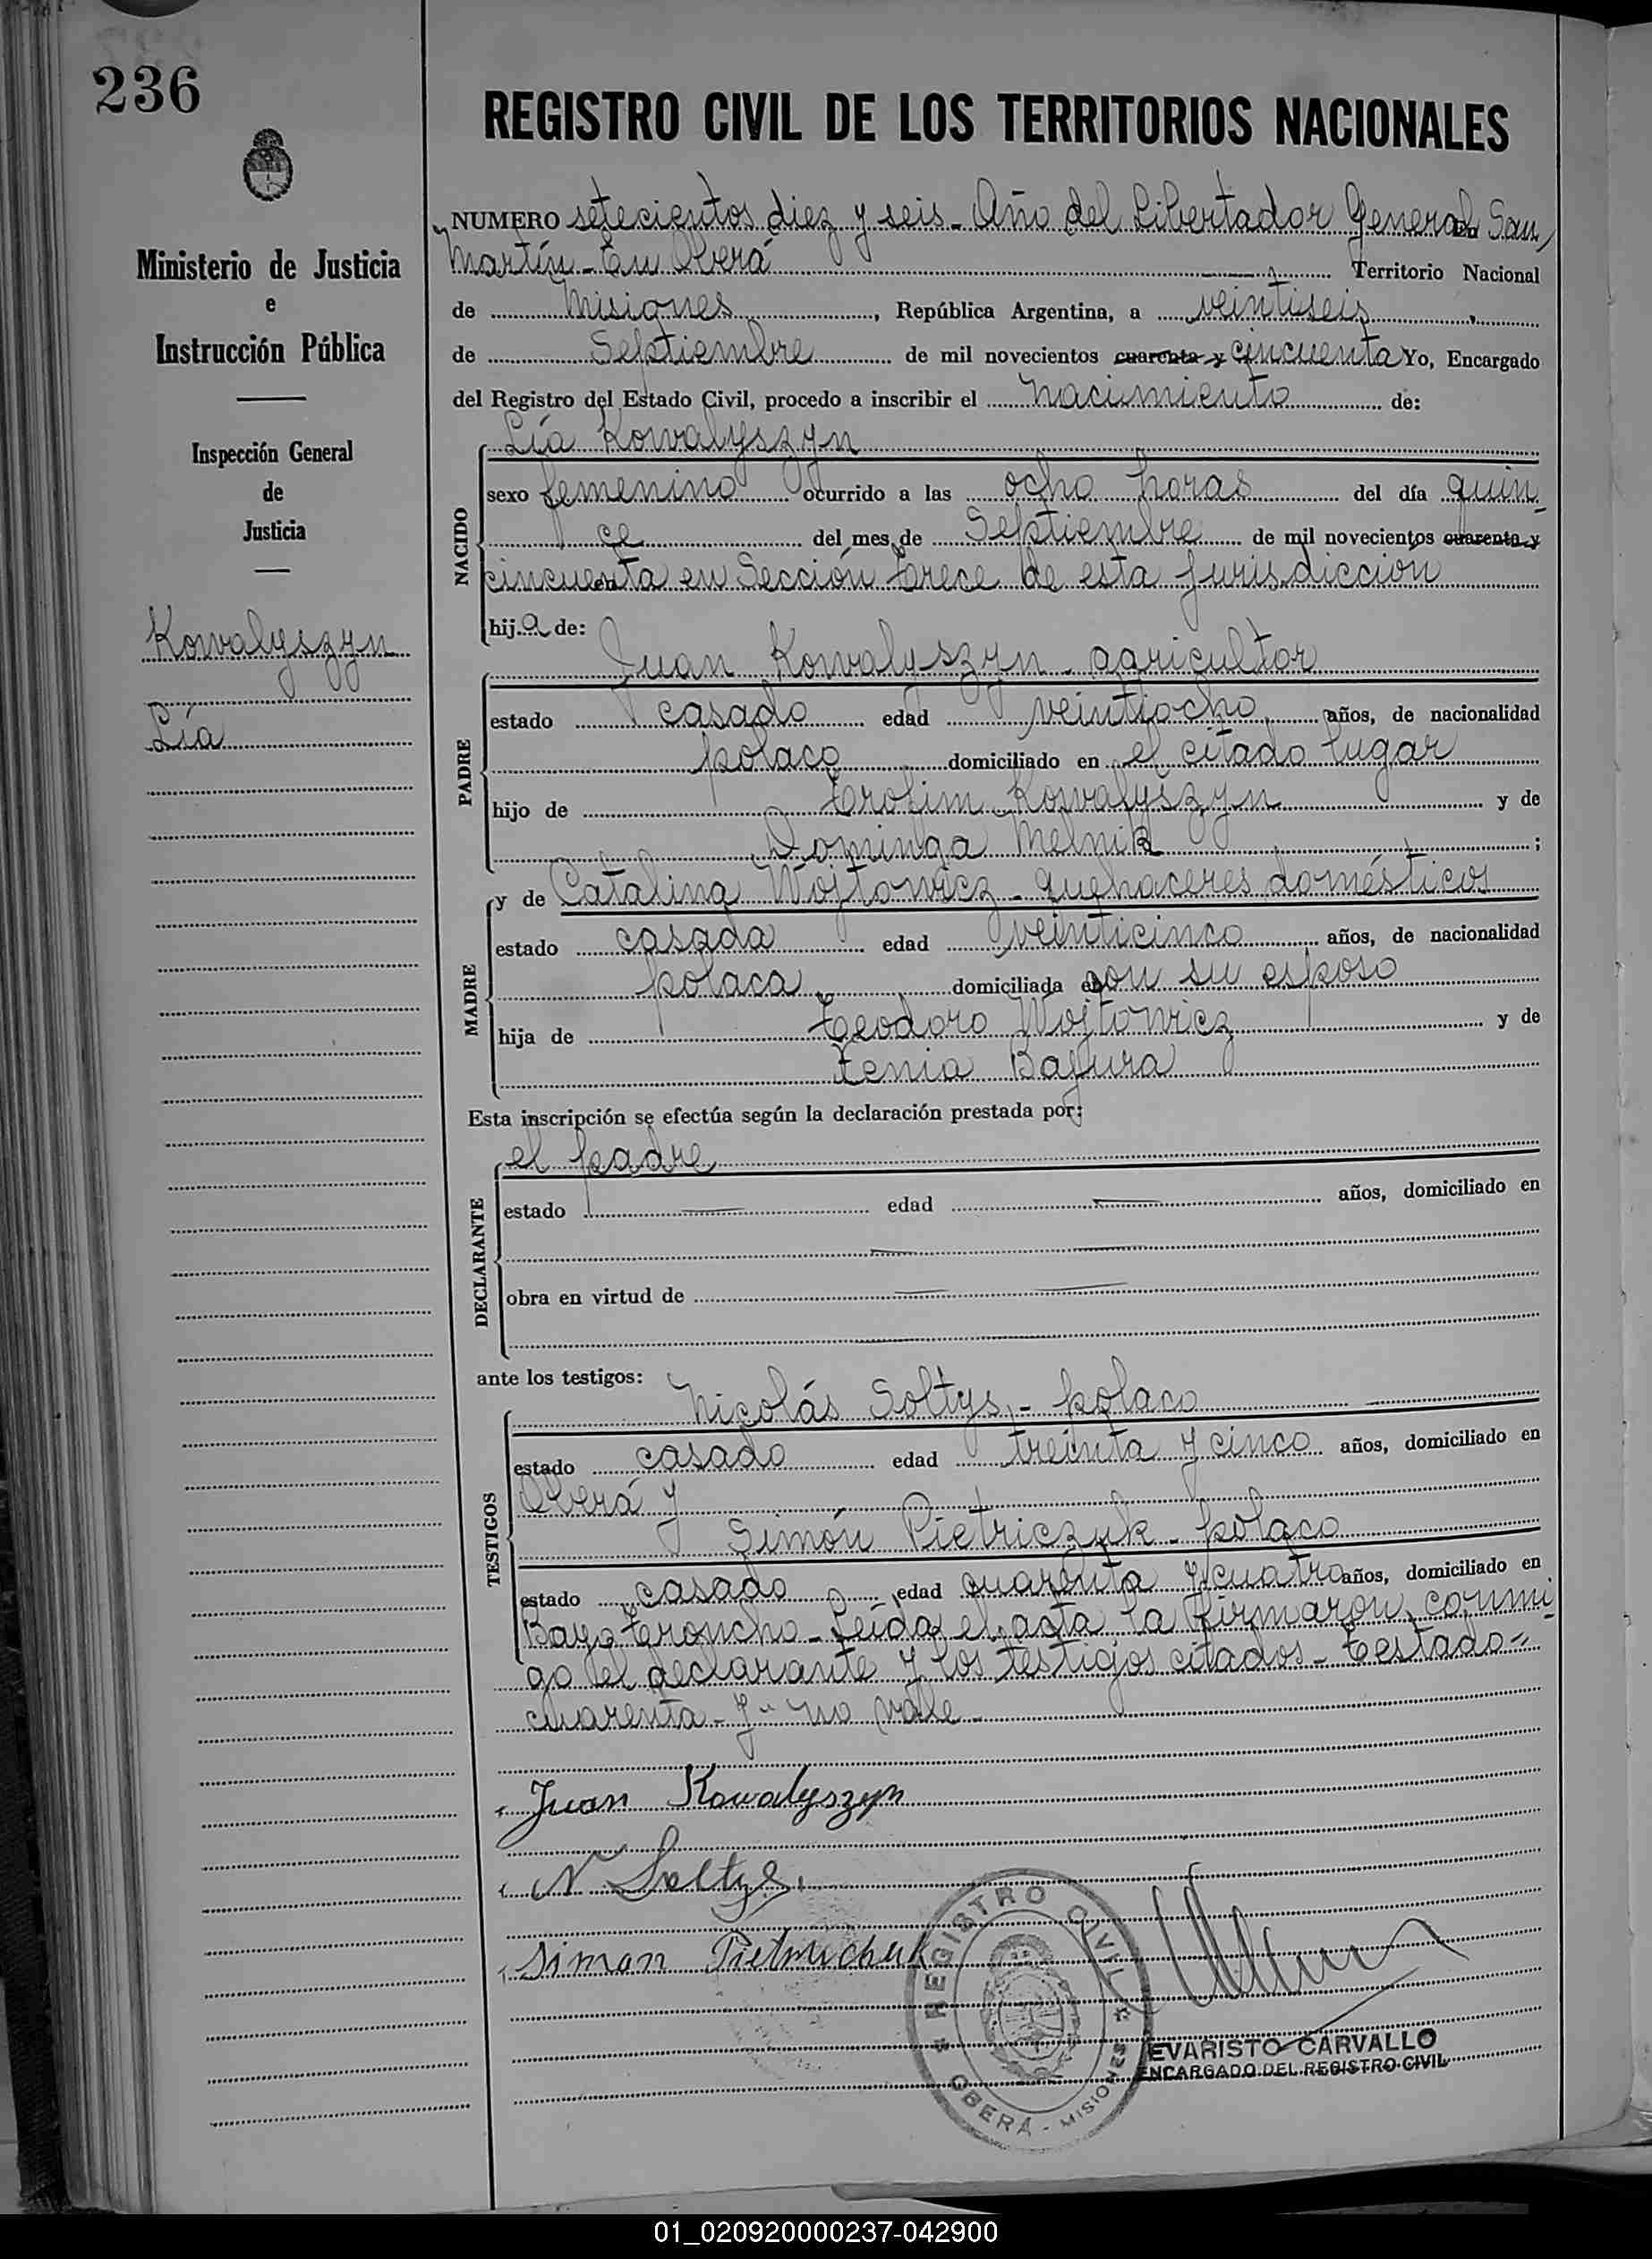 236
Ministerio de Justicia
e
Instrucción Pública
Inspección General
de
Justicia
Kowalyszyn
Lía
REGISTRO CIVIL DE LOS TERRITORIOS NACIONALES
NUMERO setecientos diez y seis - Año del Libertador General San
Martín - En Oberá Territorio Nacional
de Misiones, República Argentina, a veintiseis
de Septiembre de mil novecientos cuarenta y cincuenta Yo, Encargado
del Registro del Estado Civil, procedo a inscribir el nacimiento de:
Lía Kowalyszyn
NACIDO
sexo femenino ocurrido a las ocho horas del día quin-
ce del mes de Septiembre de mil novecientos cuarenta y
cincuenta en Sección trece de esta jurisdicción
hija de:
Juan Kowalyszyn - agricultor
PADRE
estado casado edad veintiocho años, de nacionalidad
polaco domiciliado en el citado lugar
hijo de Trofim Kowalyszyn y de
Dominga Melnik ;
y de Catalina Wojtowicz - quehaceres domésticos
MADRE
estado casada edad veinticinco años, de nacionalidad
polaca domiciliada con su esposo
hija de Teodoro Wojtowicz y de
Xenia Bajura
Esta inscripción se efectúa según la declaración prestada por:
el padre
DECLARANTE
estado edad años, domiciliado en
obra en virtud de
ante los testigos:
Nicolás Soltys - polaco
TESTIGOS
estado casado edad treinta y cinco años, domiciliado en
Oberá y
Simón Pietriczuk - polaco
estado casado edad cuarenta y cuatro años, domiciliado en
Bayo Troncho - Leída el acta la firmaron conmi-
go el declarante y los testigos citados - Testado "
cuarenta - y " no vale -
Juan Kowalyszyn
N Soltys
Siman Pietruchuk
REGISTRO CIVIL
OBERÁ - MISIONES
EVARISTO CARVALLO
ENCARGADO DEL REGISTRO CIVIL
01_020920000237-042900